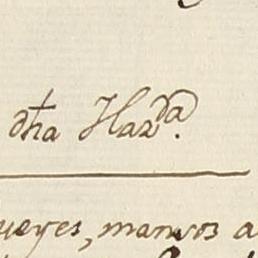 dha Hazda.
ueyes, mansos a